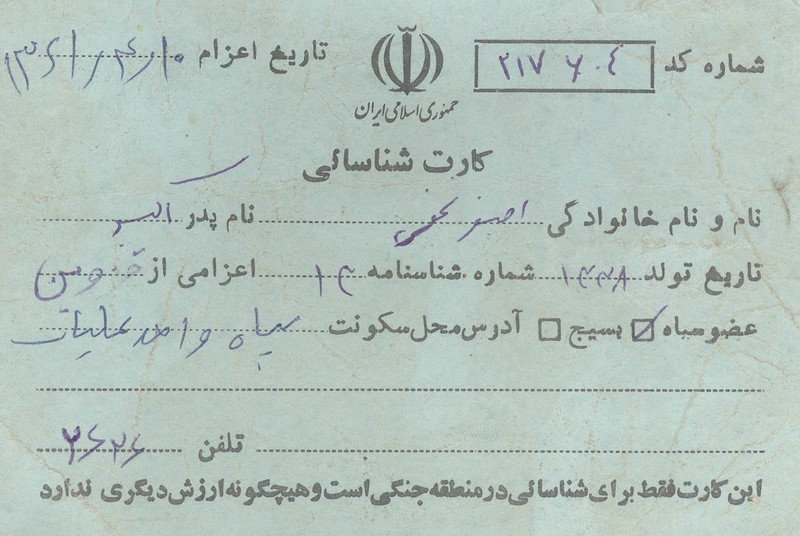 شماره کد ۲۱۷۶۰۴
تاریخ اعزام ۱۳۶۱/۴/۱۰
جمهوری اسلامی ایران
کارت شناسائی
نام و نام خانوادگی اصغر نام پدر اکبر
تاریخ تولد ۱۳۳۸ شماره شناسنامه ۱۳ اعزامی از
عضو سپاه بسیج آدرس محل سکونت سپاه واحد عملیات
تلفن
این کارت فقط برای شناسائی در منطقه جنگی است و هیچگونه ارزش دیگری ندارد